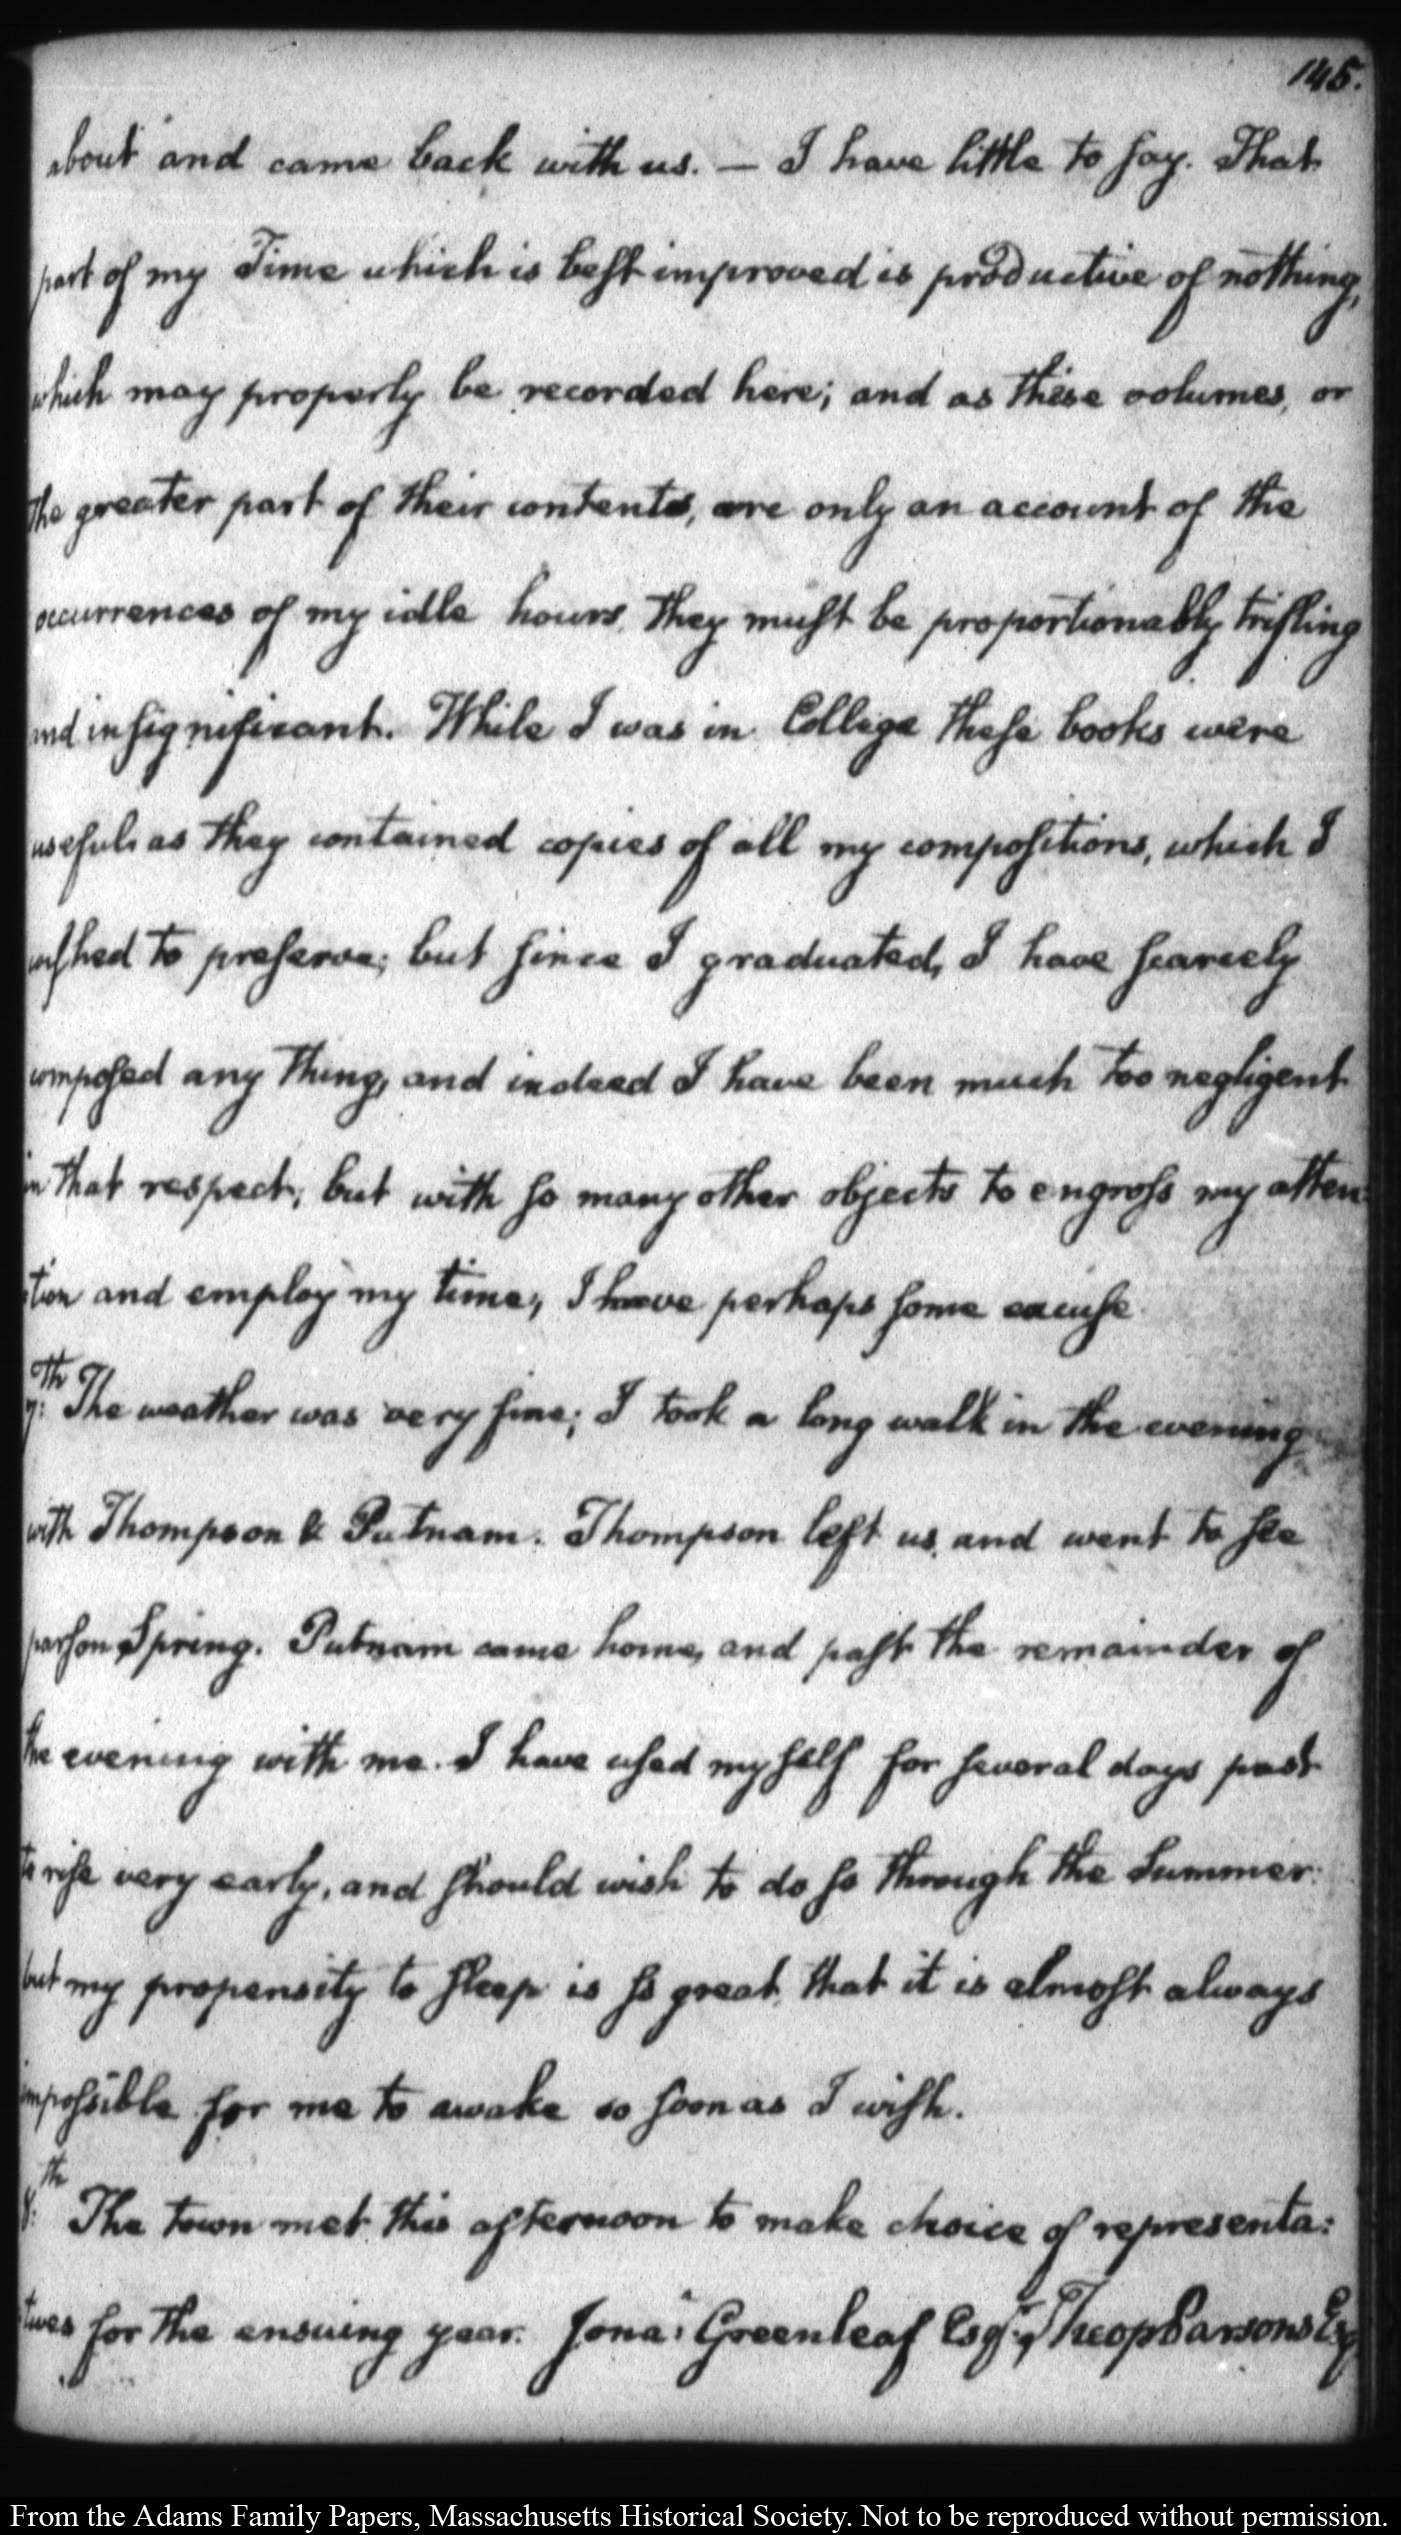 145.
about and came back with us. — I have little to say. That
part of my Time which is best improved is productive of nothing,
which may properly be recorded here; and as these volumes, or
the greater part of their contents, are only an account of the
occurrences of my idle hours, they must be proportionably trifling
and insignificant. While I was in College these books were
useful, as they contained copies of all my compositions, which I
wished to preserve; but since I graduated, I have scarcely
composed any thing, and indeed I have been much too negligent
in that respect; but with so many other objects to engross my atten:
:tion and employ my time, I have perhaps some excuse.
7:th The weather was very fine; I took a long walk in the evening
with Thompson & Putnam. Thompson left us, and went to see
parson Spring. Putnam came home, and past the remainder of
the evening with me. I have used myself for several days past
to rise very early, and should wish to do so through the Summer:
but my propensity to sleep is so great, that it is almost always
impossible for me to awake so soon as I wish.
8:th The town met this afternoon to make choice of representa:
tives for the ensuing year. Jona: Greenleaf Esqr., Theop Parsons Esqr
From the Adams Family Papers, Massachusetts Historical Society. Not to be reproduced without permission.